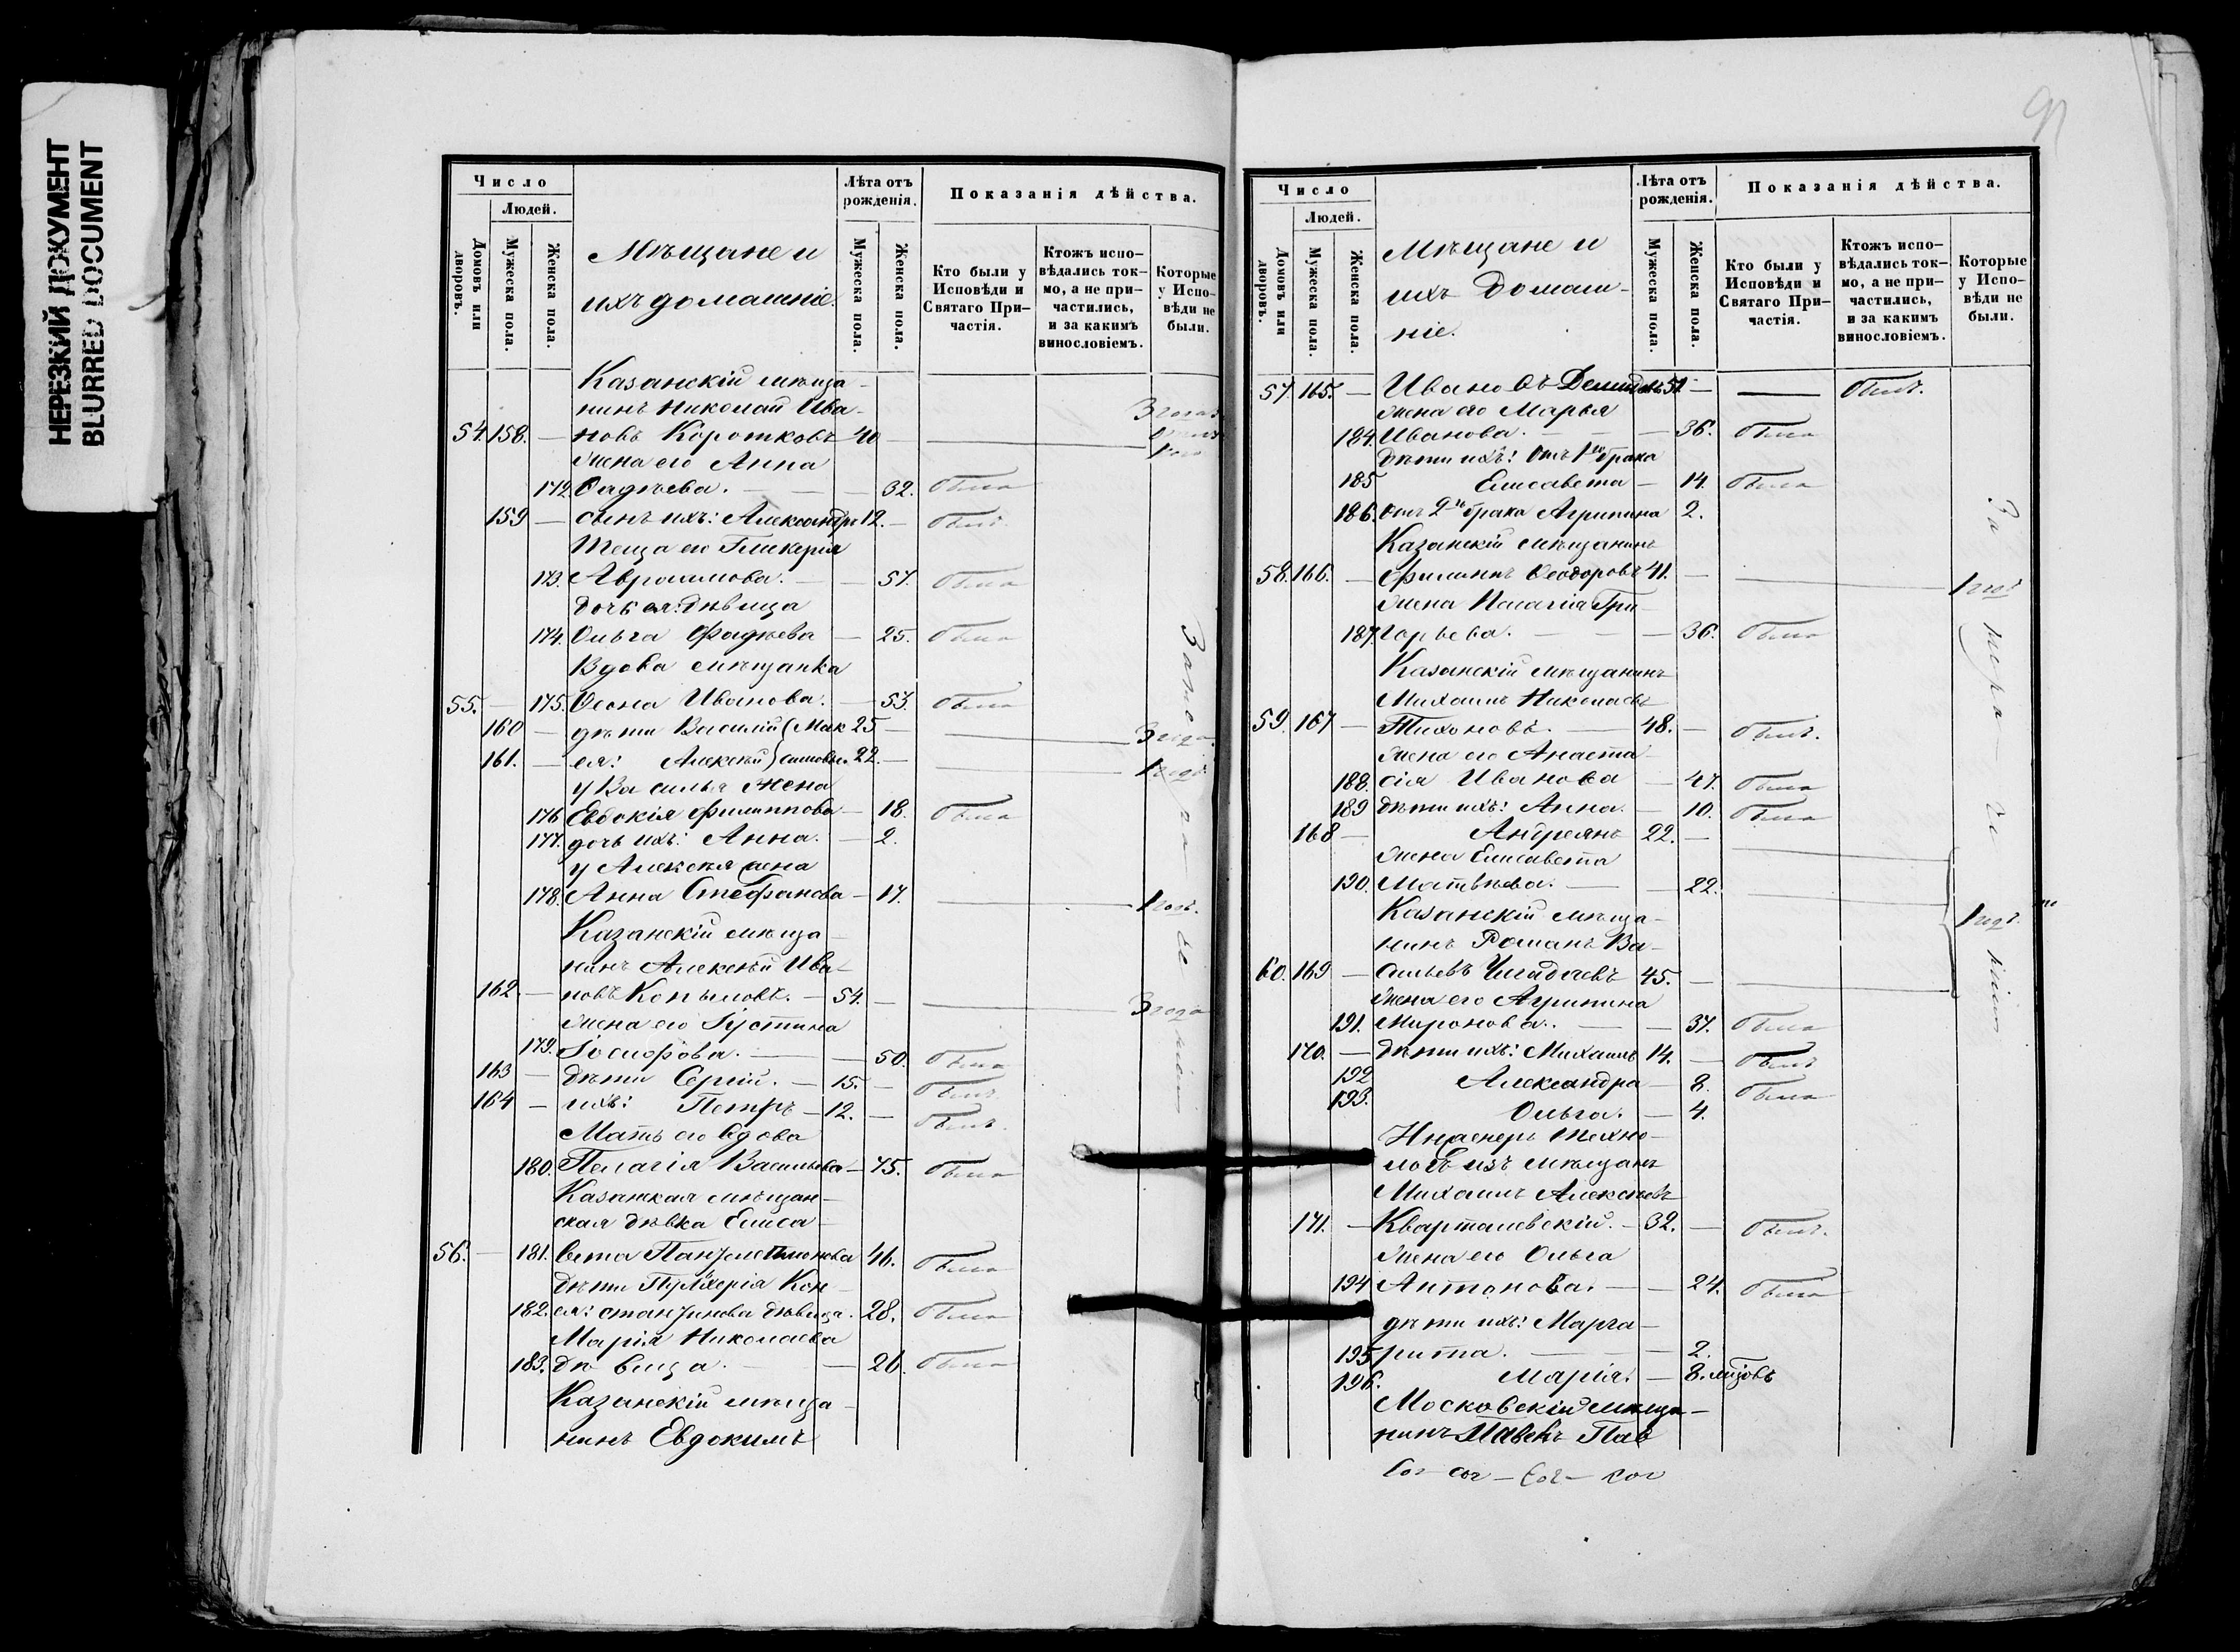 НЕРЕЗКИЙ ДОКУМЕНТ
BLURRED DOCUMENT
Число
Людей.
Домовъ или дворовъ.
Мужеска пола.
Женска пола.
Мѣщане и
ихъ домашніе.
Лѣта отъ рожденія.
Мужеска пола.
Женска пола.
Показанія дѣйства.
Кто были у Исповѣди и Святаго Причастія.
Ктожъ исповѣдались токмо, а не причастились, и за какимъ винословіемъ.
Которые у Исповѣди не были.
Казанскій мѣща-
нинъ Николай Ива-
54. 158. — новъ Коротковъ 40 —
жена его Анна
172. Фадѣева. — — 32. была
159 — сынъ ихъ: Александръ 12. — былъ
Теща его Гликерія
173. Авраамова. — 57. была
дочь ея: дѣвица
174. Ольга Фадѣева — 25. была
Вдова мѣщанка
55. — 175. Ѳеона Иванова. — 53. была
160 — дѣти Василій (Мак 25 — 3 года.
161. — ея: Алексѣй) симовы 22. — 1 годъ
у Василья жена
176 Евдокія Филиппова — 18. была
177. дочь ихъ: Анна. — 2.
у Алексѣя жена
178. Анна Стефанова — 17. 1 годъ.
Казанскій мѣща-
нинъ Алексѣй Ива-
162. — новъ Копыловъ. — 54. — 3 года
жена его Іустина
179. Іосифова. — 50. была
163 — дѣти Сергій. — 15. — былъ
164 — ихъ: Петръ — 12. — былъ.
Мать его вдова
180. Пелагія Васильева — 75. была
Казанская мѣщан-
ская дѣвка Елиса-
56. — 181. вета Пантелеимонова 46. была
дѣти Пульхерія Кон-
182. ея: стантинова дѣвица. 28. была
Марія Николаева
183. дѣвица. — 26. была
Казанскій мѣща-
нинъ Евдокимъ
91
Число
Людей.
Домовъ или дворовъ.
Мужеска пола.
Женска пола.
Мѣщане и
ихъ домаш-
ніе.
Лѣта отъ рожденія.
Мужеска пола.
Женска пола.
Показанія дѣйства.
Кто были у Исповѣди и Святаго Причастія.
Ктожъ исповѣдались токмо, а не причастились, и за какимъ винословіемъ.
Которые у Исповѣди не были.
57. 165. — Ивановъ Демидовъ 51 — былъ.
жена его Марья
184. Иванова. — — 36. была
дѣти ихъ: отъ 1го брака
185 Елисавета — 14. была
186. отъ 2го брака Агрипина 2.
Казанскій мѣщанинъ
58. 166. — Филиппъ Ѳеодоровъ 41. — 1 годъ
жена Пелагія Гри-
187. горьева. — — 36. была
Казанскій мѣщанинъ
Михаилъ Николаевъ
59. 167 — Тихоновъ. — 48. — былъ.
жена его Анаста-
188. сія Иванова — 47. была
189 дѣти ихъ: Анна. — 10. была
168 — Андреянъ 22. —
жена Елисавета
190. Матвѣева. — — 22.
Казанскій мѣща- 1 годъ.
нинъ Романъ Ва-
60. 169 — сильевъ Чегадаевъ 45. —
жена его Агрипина
191. Миронова. — — 37. была
170. — дѣти ихъ: Михаилъ 14. — былъ
192 Александра — 8. была
193. Ольга. — 4.
Инженеръ Техно-
логъ изъ мѣщанъ
Михаилъ Алексѣевъ
171. — Кварталевскій. — 32. — былъ.
жена его Ольга
194 Антонова. — — 24. была
дѣти ихъ: Марга-
195 рита. — — 2.
196. Марія. — 8. мѣсяцовъ
Московскій мѣща-
нинъ Павелъ Пав